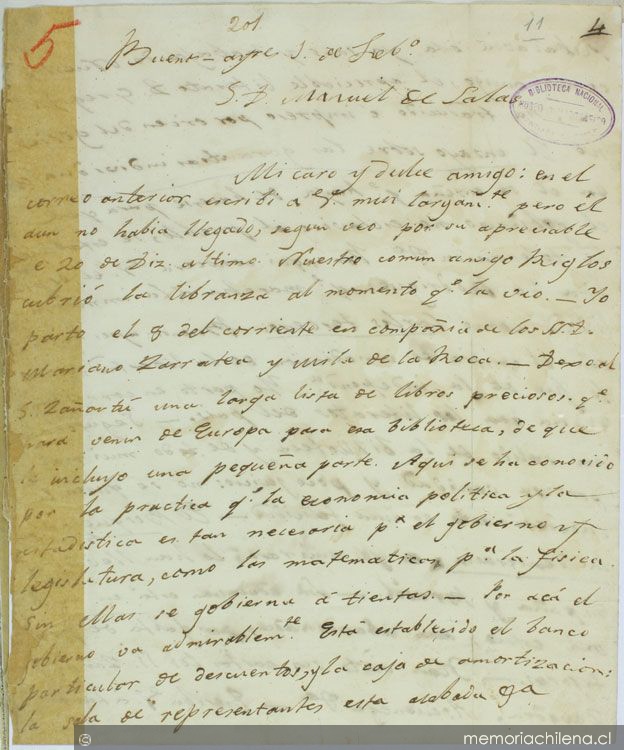 5
201.
11
4
Buenˢ-ayreˢ 1. de Feb.º
S. D. Manuel de Salas
BIBLIOTECA NACIONAL
Mi caro y dulce amigo: en el
correo anterior escribi a V. mui largam.te pero él
aun no habia llegado, segun veo por su apreciable
e 20 de Diz. ultimo. Nuestro comun amigo Riglos
cubrió la libranza al momento q.e la vio. _ Yo
parto el 8 del corriente en compañia de los S.S. D.
Mariano Zarratea y Mila de la Roca. _ Dexo al
S. Zañartú una larga lista de libros preciosos q.e
hará venir de Europa para esa biblioteca, de que
le incluyo una pequeña parte. Aqui se ha conocido
por la practica q.e la economia politica y la
estadistica es tan necesaria p.a el gobierno y
legislatura, como las matematicas p.a la fisica.
Sin ellas se gobierna á tientas. _ Por acá el
gobierno va admirablem.te Está establecido el banco
particular de descuentos, y la caja de amortizacion:
la sala de representantes esta acabada
memoriachilena.cl